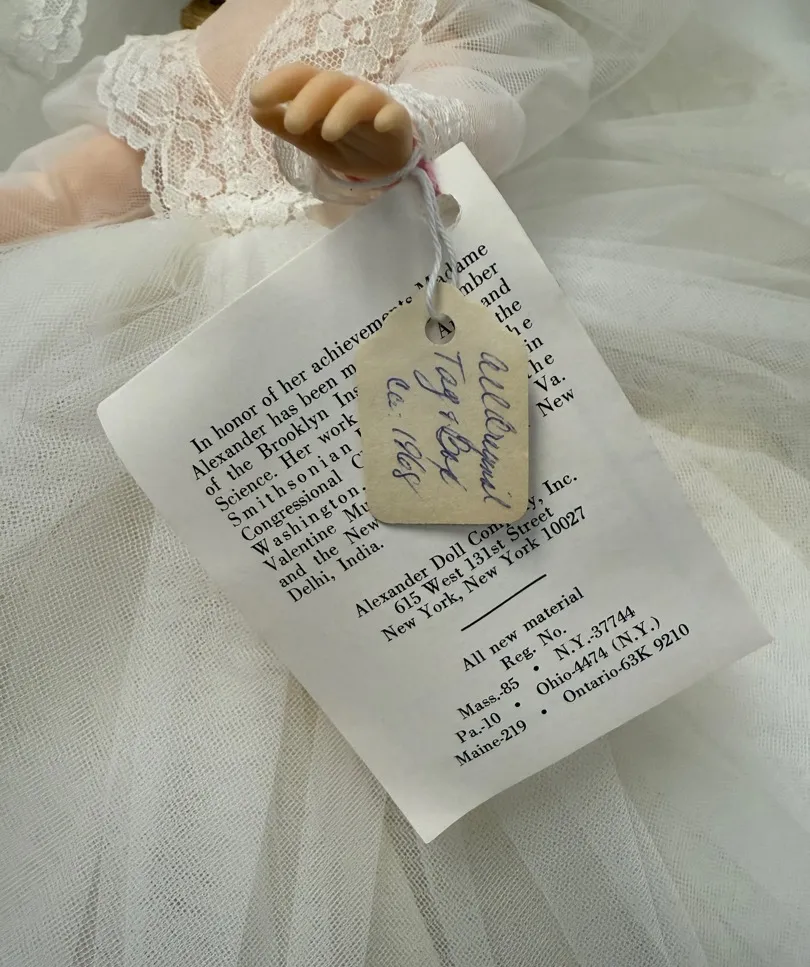 In honor of her achievements Madame
Alexander has been
of the Brooklyn and
Science. Her work the
Smithsonian
Congressional in
Washington,
Valentine Va.
and the New New
Delhi, India.
Alexander Doll Company, Inc.
615 West 131st Street
New York, New York 10027
All new material
Reg. No.
Mass.-85 • N.Y.-37744
Pa.-10 • Ohio-4474 (N.Y.)
Maine-219 • Ontario-63K 9210
All Original
Tag & Box
Ca. 1968